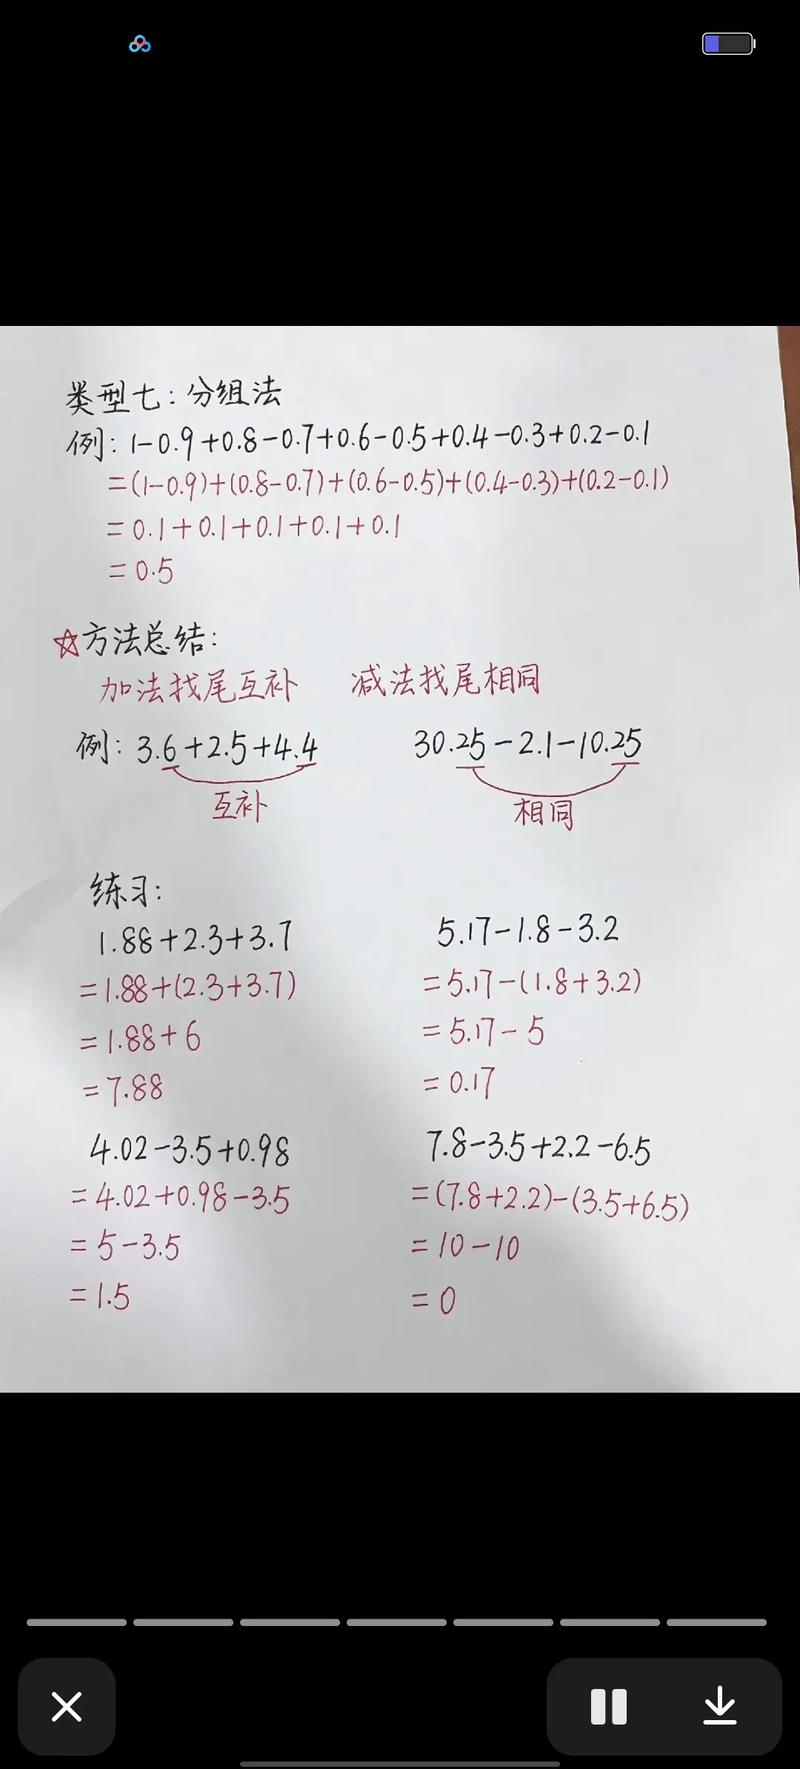 类型七：分组法
例：1-0.9+0.8-0.7+0.6-0.5+0.4-0.3+0.2-0.1
=(1-0.9)+(0.8-0.7)+(0.6-0.5)+(0.4-0.3)+(0.2-0.1)
=0.1+0.1+0.1+0.1+0.1
=0.5
☆方法总结：
加法找尾互补 减法找尾相同
例：3.6+2.5+4.4 30.25-2.1-10.25
互补 相同
练习：
1.88+2.3+3.7 5.17-1.8-3.2
=1.88+(2.3+3.7) =5.17-(1.8+3.2)
=1.88+6 =5.17-5
=7.88 =0.17
4.02-3.5+0.98 7.8-3.5+2.2-6.5
=4.02+0.98-3.5 =(7.8+2.2)-(3.5+6.5)
=5-3.5 =10-10
=1.5 =0